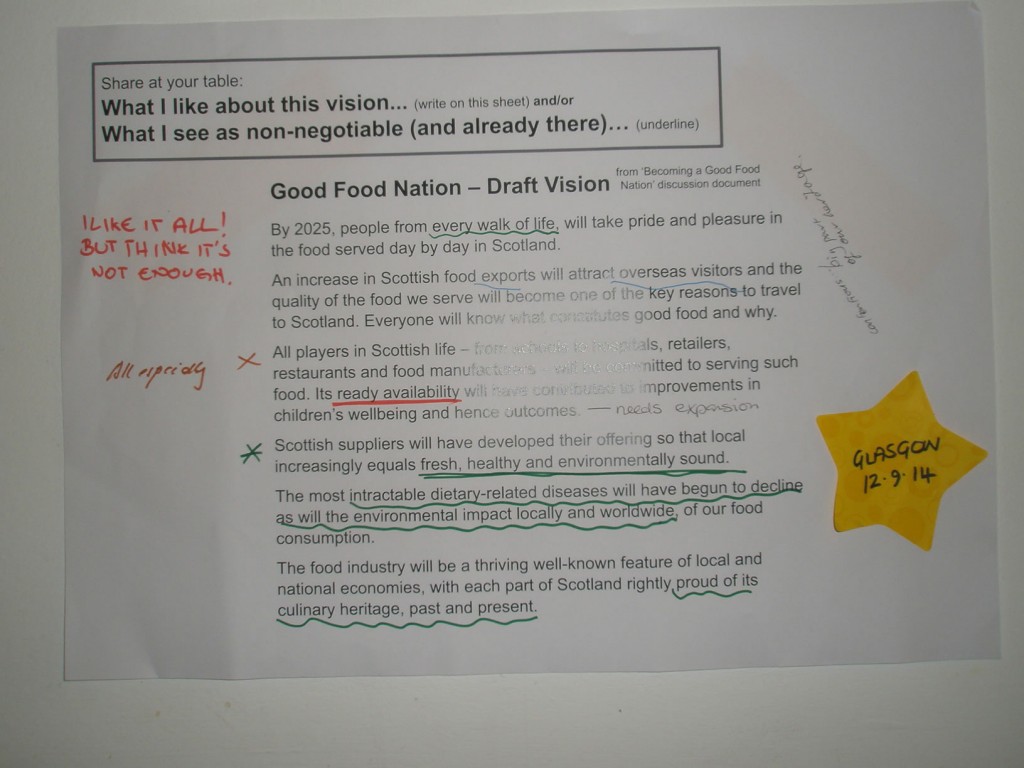 Share at your table:
What I like about this vision... (write on this sheet) and/or
What I see as non-negotiable (and already there)... (underline)
Good Food Nation – Draft Vision
from 'Becoming a Good Food
Nation' discussion document
I LIKE IT ALL!
BUT THINK IT'S
NOT ENOUGH.
By 2025, people from every walk of life, will take pride and pleasure in
the food served day by day in Scotland.
An increase in Scottish food exports will attract overseas visitors and the
quality of the food we serve will become one of the key reasons to travel
to Scotland. Everyone will know what constitutes good food and why.
big part
of our heritage.
All especially
All players in Scottish life – from schools to hospitals, retailers,
restaurants and food manufacturers – will be committed to serving such
food. Its ready availability will have contributed to improvements in
children's wellbeing and hence outcomes. — needs expansion
Scottish suppliers will have developed their offering so that local
increasingly equals fresh, healthy and environmentally sound.
The most intractable dietary-related diseases will have begun to decline
as will the environmental impact locally and worldwide, of our food
consumption.
The food industry will be a thriving well-known feature of local and
national economies, with each part of Scotland rightly proud of its
culinary heritage, past and present.
GLASGOW
12.9.14